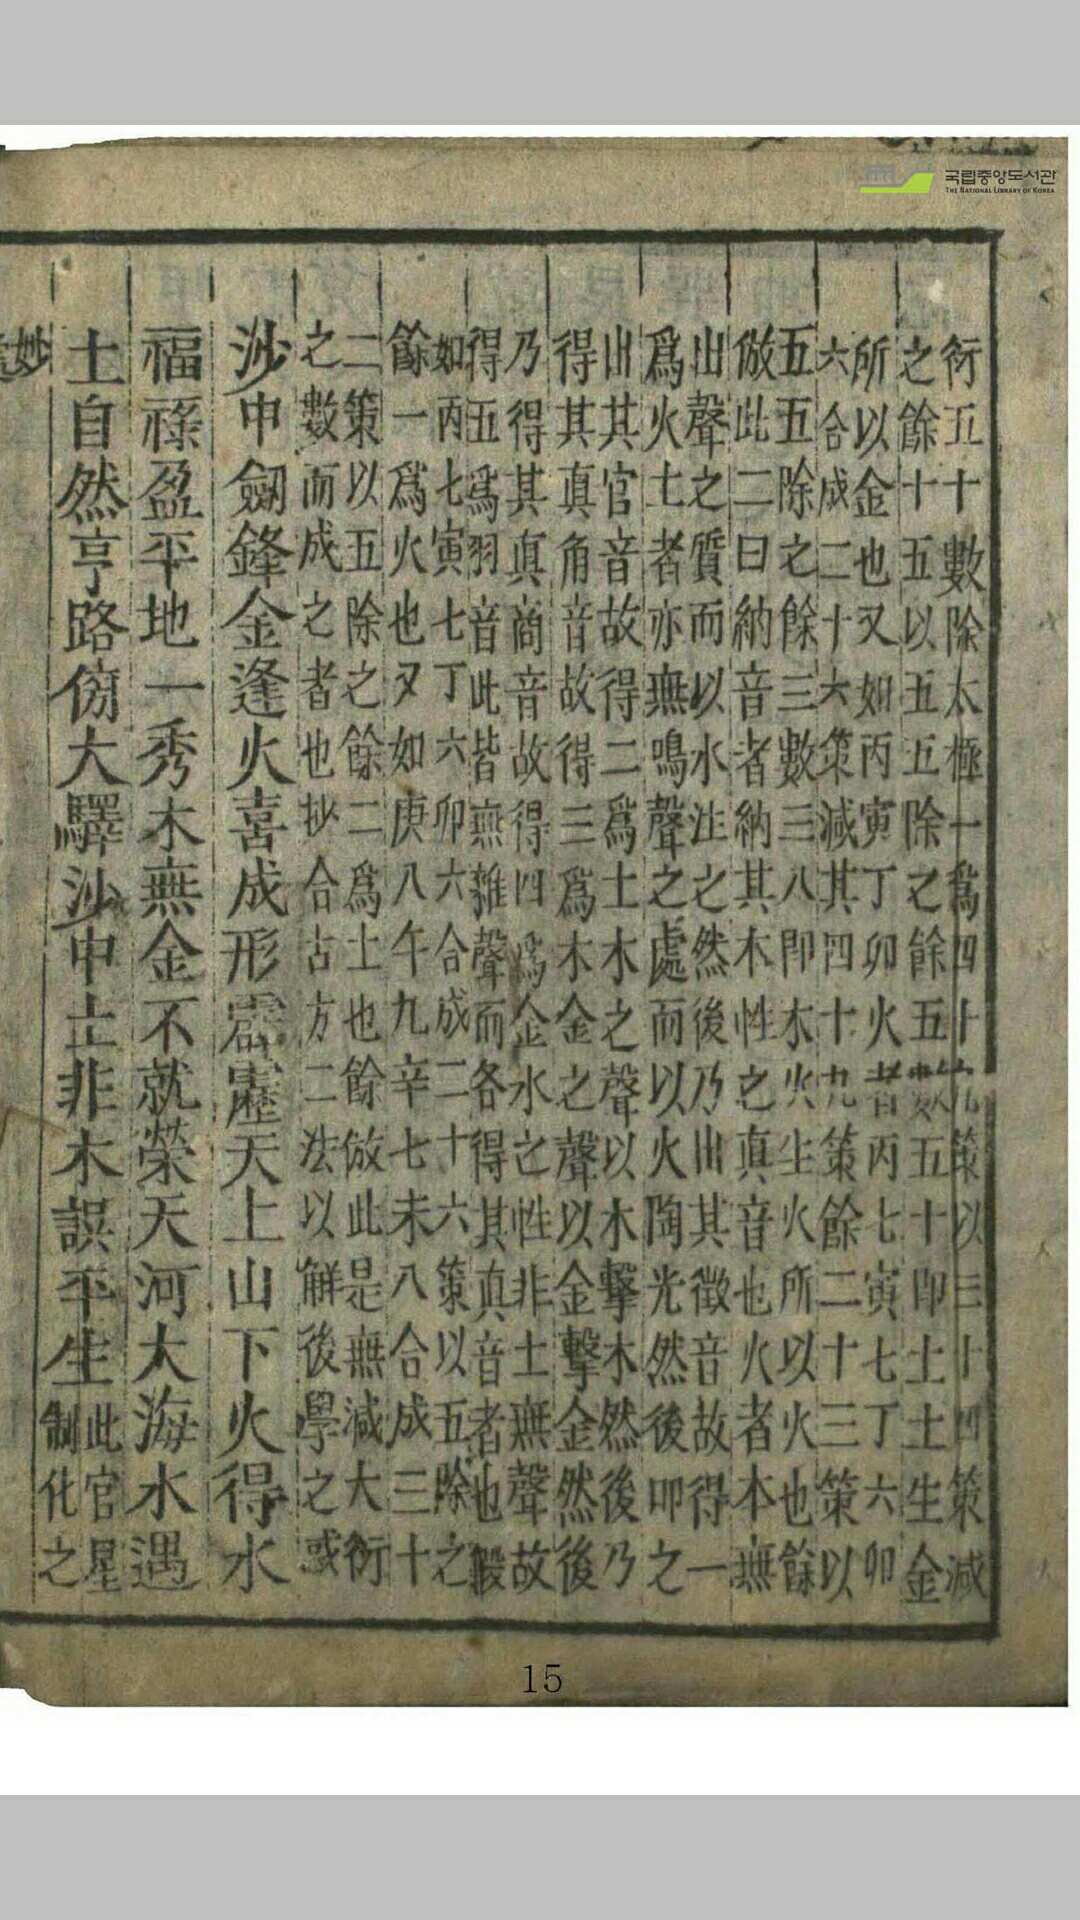 국립중앙도서관
THE NATIONAL LIBRARY OF KOREA
衍五十數除太極一爲四十九策以三十四策減
之餘十五以五五除之餘五數五十即土土生金
所以金也又如丙寅丁卯火者丙七寅七丁六卯
六合成二十六策減其四十九策餘二十三策以
五五除之餘三數三八即木火生火所以火也餘
倣此二曰納音者納其本性之真音也火者本無
出聲之質而以水注之然後乃出其徵音故得一
爲火土者亦無鳴聲之處而以火陶光然後叩之
出其宮音故得二爲土木之聲以木擊木然後乃
得其真角音故得三爲木金之聲以金擊金然後
乃得其真商音故得四爲金水之性非土無聲故
得五爲羽音此皆無雜聲而各得其真音者也假
如丙七寅七丁六卯六合成二十六策以五除之
餘一爲火也又如庚八午九辛七未八合成三十
二策以五除之餘二爲土也餘倣此是無減大衍
之數而成之者也抄合古方二法以解後學之惑
沙中劔鋒金逢火喜成形霹靂天上山下火得水
福祿盈平地一秀木無金不就榮天河大海水遇
土自然亨路傍大驛沙中土非木誤平生
此官星
制化之
妙